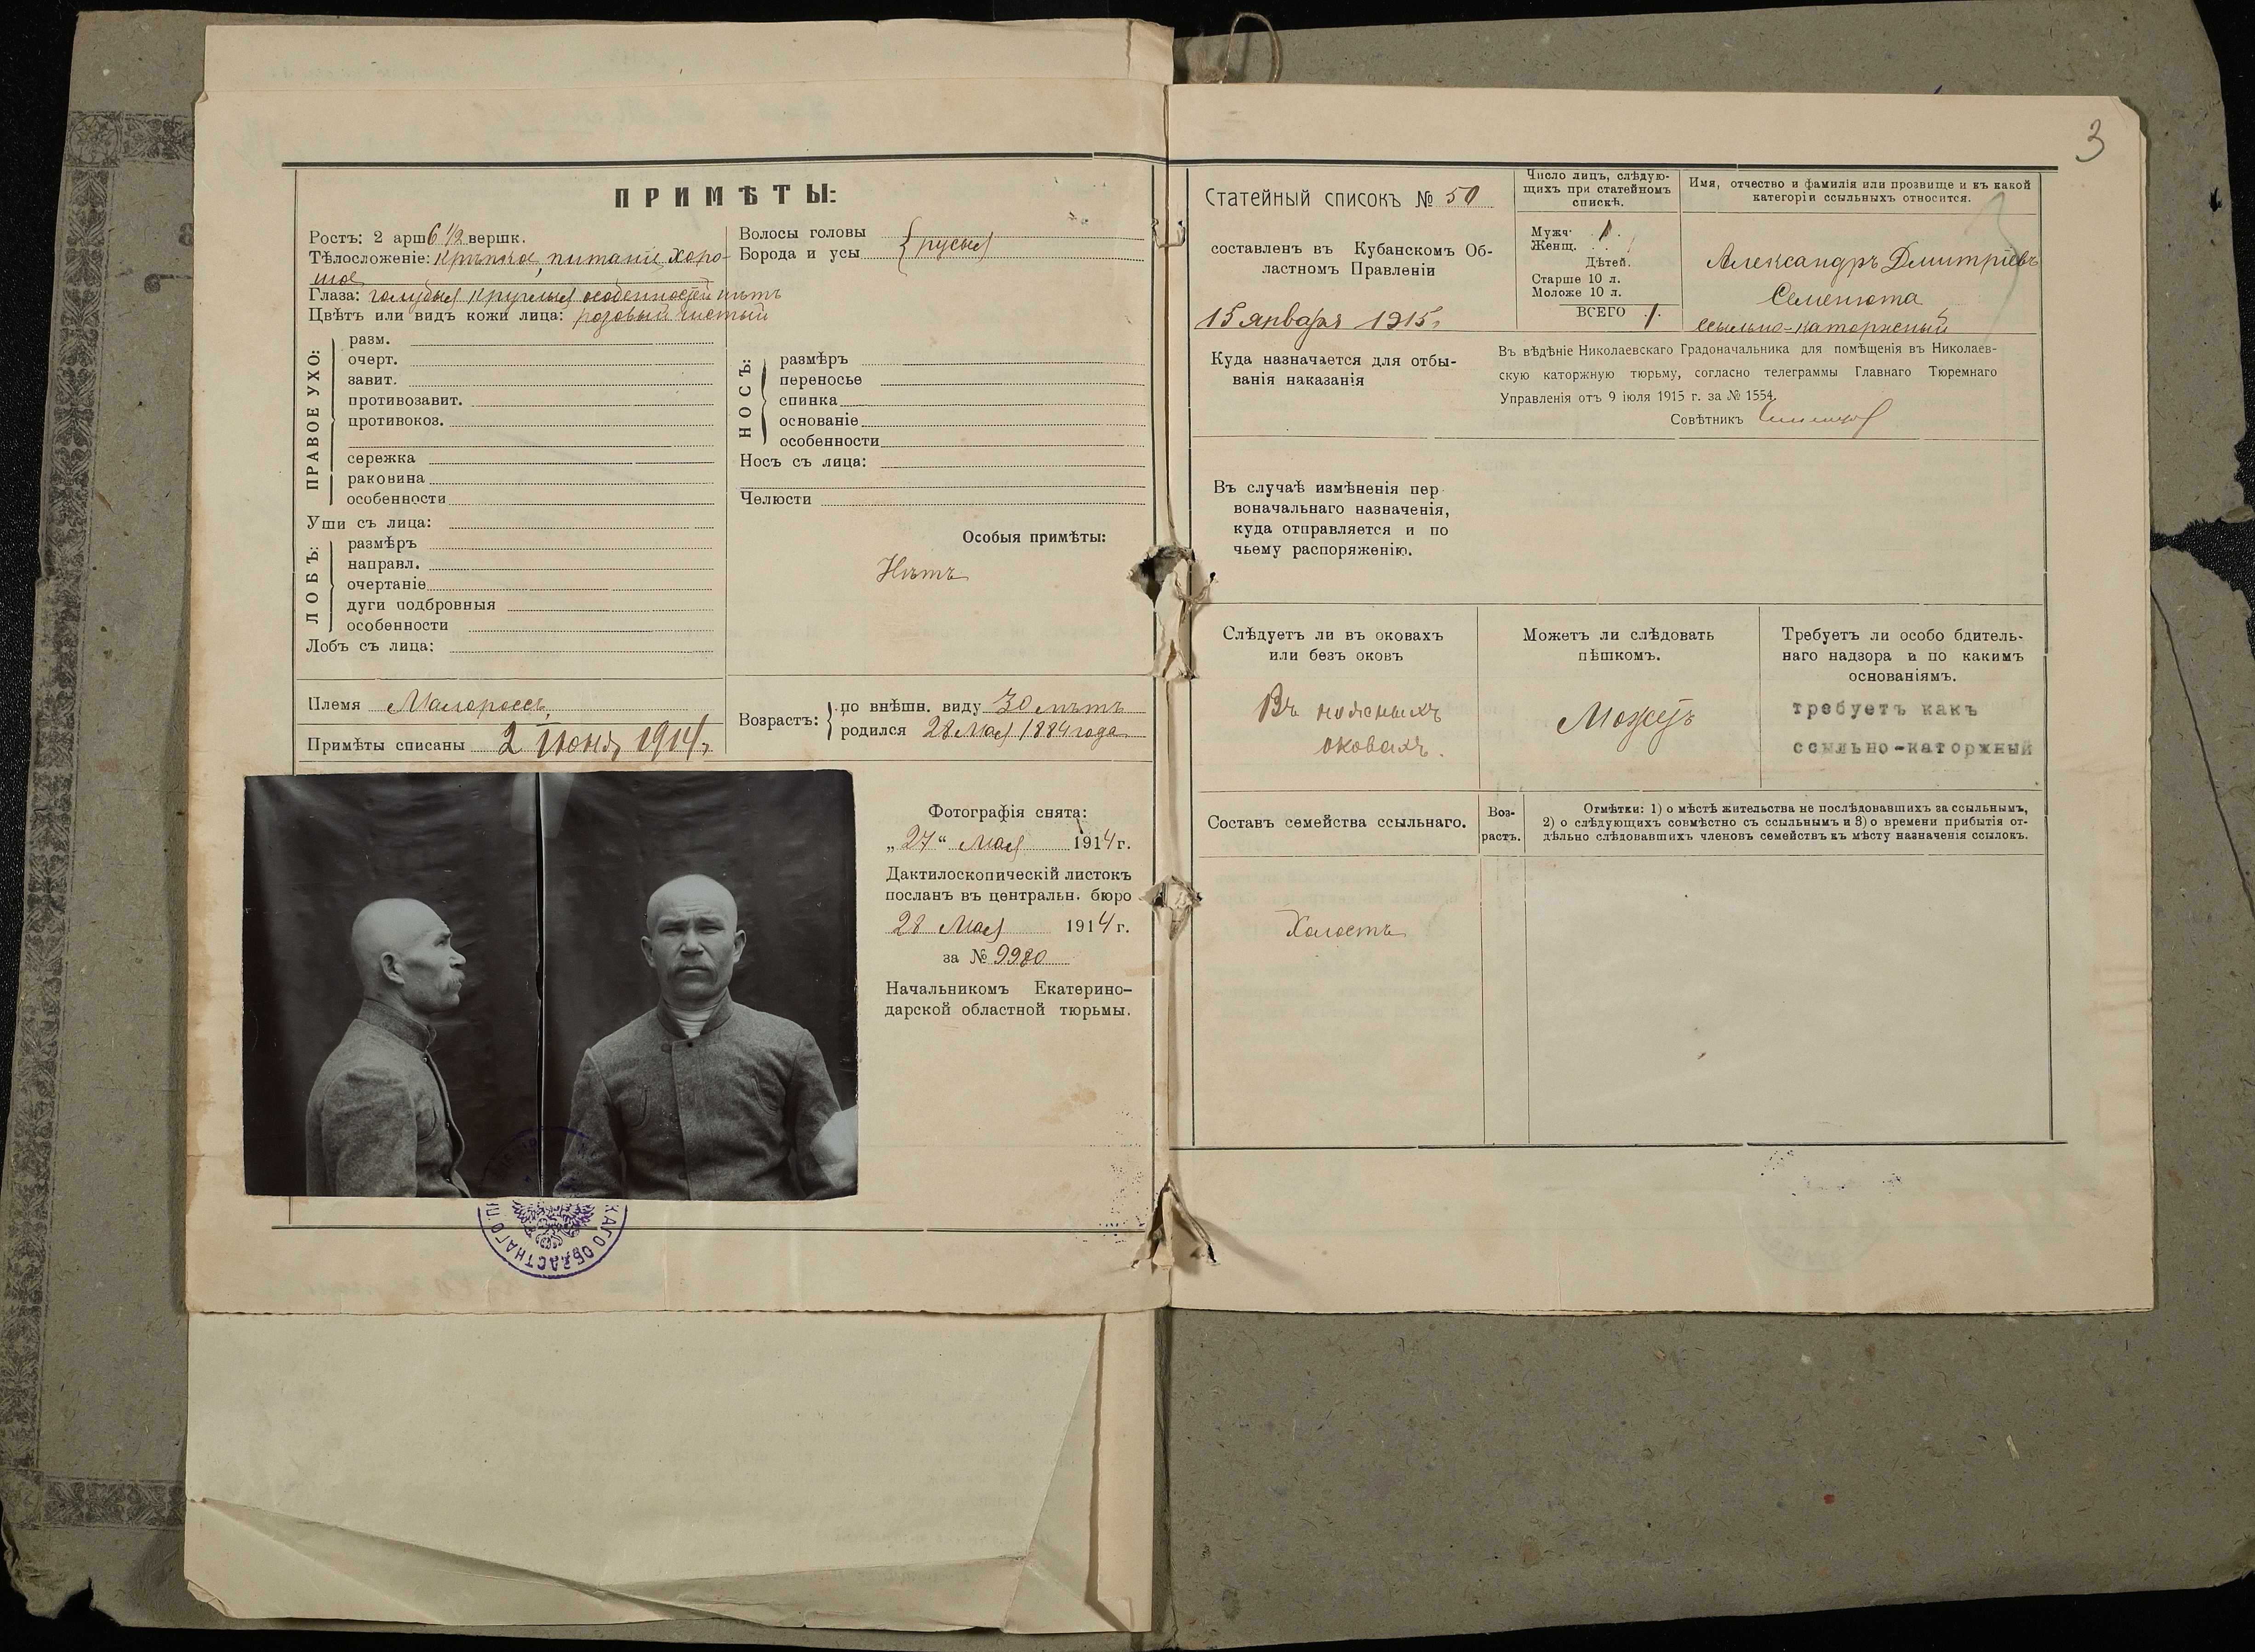 ПРИМѢТЫ:
Ростъ: 2 арш 6 1/2 вершк.
Тѣлосложеніе: крѣпкое, питаніе хоро-
шое
Глаза: голубые круглые особенностей нѣтъ
Цвѣтъ или видъ кожи лица: розовый чистый
Волосы головы
Борода и усы
русые
ПРАВОЕ УХО:
разм.
очерт.
завит.
противозавит.
противокоз.
сережка
раковина
особенности
Уши съ лица:
ЛОБЪ:
размѣръ
направл.
очертаніе
дуги подбровныя
особенности
Лобъ съ лица:
НОСЪ:
размѣръ
переносье
спинка
основаніе
особенности
Носъ съ лица:
Челюсти
Особыя примѣты:
Нѣтъ
Племя Малороссъ
Примѣты списаны 2 Іюня 1914 г.
Возрастъ:
по внѣшн. виду 30 лѣтъ
родился 28 Мая 1884 года
Фотографія снята:
„27“ Мая 1914 г.
Дактилоскопическій листокъ
посланъ въ центральн. бюро
28 Мая 1914 г.
за № 9980
Начальникомъ Екатерино-
дарской областной тюрьмы.
КАГО ОБЛАСТНАГО П
3
Статейный списокъ № 50
составленъ въ Кубанскомъ Об-
ластномъ Правленіи
15 января 1915 г.
Число лицъ, слѣдую-
щихъ при статейномъ
спискѣ.
Мужч. 1.
Женщ.
Дѣтей.
Старше 10 л.
Моложе 10 л.
ВСЕГО 1.
Имя, отчество и фамилія или прозвище и къ какой
категоріи ссыльныхъ относится.
Александръ Дмитріевъ
Семенюта
ссыльно-каторжный
Куда назначается для отбы-
ванія наказанія
Въ вѣдѣніе Николаевскаго Градоначальника для помѣщенія въ Николаев-
скую каторжную тюрьму, согласно телеграммы Главнаго Тюремнаго
Управленія отъ 9 іюля 1915 г. за № 1554.
Совѣтникъ
Въ случаѣ измѣненія пер
воначальнаго назначенія,
куда отправляется и по
чьему распоряженію.
Слѣдуетъ ли въ оковахъ
или безъ оковъ
Въ ножныхъ
оковахъ.
Можетъ ли слѣдовать
пѣшкомъ.
Можетъ
Требуетъ ли особо бдитель-
наго надзора и по какимъ
основаніямъ.
требуетъ какъ
ссыльно-каторжный
Составъ семейства ссыльнаго.
Воз-
растъ.
Отмѣтки: 1) о мѣстѣ жительства не послѣдовавшихъ за ссыльнымъ,
2) о слѣдующихъ совмѣстно съ ссыльнымъ и 3) о времени прибытія от-
дѣльно слѣдовавшихъ членовъ семействъ къ мѣсту назначенія ссылокъ.
Холостъ